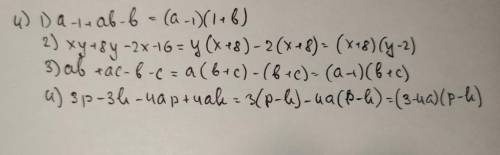 4) 1) a-1+ab-b = (a-1)(1+b)
2) xy+8y-2x-16=y(x+8)-2(x+8)=(x+8)(y-2)
3) ab+ac-b-c=a(b+c)-(b+c)=(a-1)(b+c)
4) 3p-3k-4ap+4ak=3(p-k)-4a(p-k)=(3-4a)(p-k)